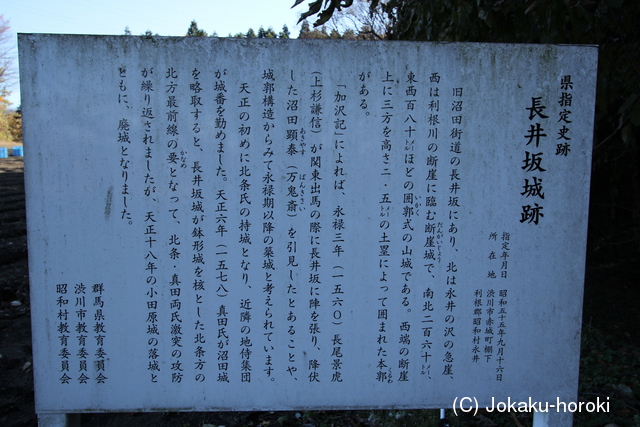 県指定史跡
長井坂城跡
指定年月日　昭和五十五年九月十六日
所在地　渋川市赤城町棚下
利根郡昭和村永井
旧沼田街道の長井坂にあり、北は永井の沢の急崖、
西は利根川の断崖に臨む断崖城で、南北二百六十㍍、
だんがいじょう
東西百八十㍍ほどの囲郭式の山城である。西端の断崖
いかく
上に三方を高さ二・五㍍の土塁によって囲まれた本郭
がある。
「加沢記」によれば、永禄三年（一五六〇）長尾景虎
（上杉謙信）が関東出馬の際に長井坂に陣を張り、降伏
した沼田顕泰（万鬼斎）を引見したとあることや、
あきやす
ばんきさい
城郭構造からみて永禄期以降の築城と考えられています。
天正の初めに北条氏の持城となり、近隣の地侍集団
が城番を勤めました。天正六年（一五七八）真田氏が沼田城
を略取すると、長井坂城が鉢形城を核とした北条方の
北方最前線の要となって、北条・真田両氏激突の攻防
かなめ
が繰り返されましたが、天正十八年の小田原城の落城と
ともに、廃城となりました。
群馬県教育委員会
渋川市教育委員会
昭和村教育委員会
(C) Jokaku-horoki